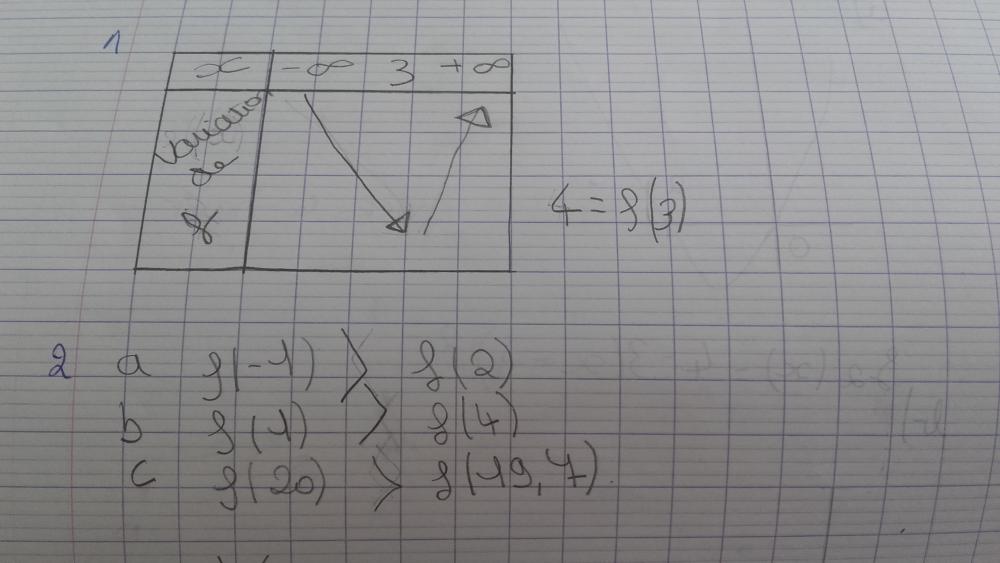 1
x -∞ 3 +∞
Variation
de
f
4 = f(3)
2 a f(-1) > f(2)
b f(1) > f(4)
c f(20) > f(19,7).